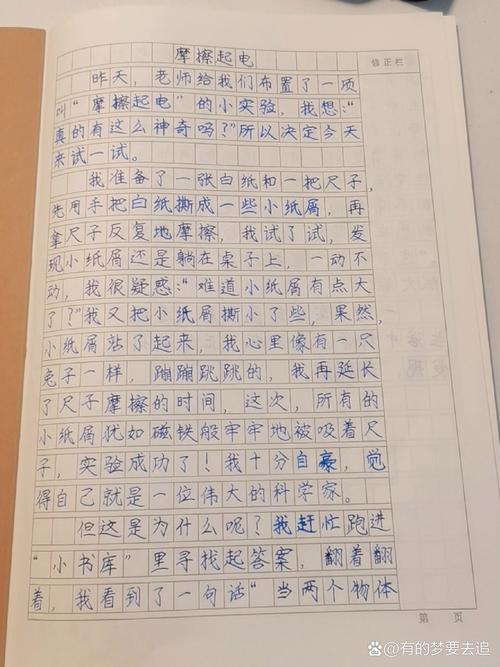 摩擦起电
修正栏
昨天，老师给我们布置了一项
叫“摩擦起电”的小实验，我想：“
真的有这么神奇吗？”所以决定今天
来试一试。
我准备了一张白纸和一把尺子，
先用手把白纸撕成一些小纸屑，再
拿尺子反复地摩擦，我试了试，发
现小纸屑还是躺在桌子上，一动不
动，我很疑惑：“难道小纸屑有点大
了？”我又把小纸屑撕小了些，果然，
小纸屑站了起来，我心里像有一只
兔子一样，蹦蹦跳跳的，我再延长
了尺子摩擦的时间，这次，所有的
小纸屑犹如磁铁般牢牢地被吸着尺
子，实验成功了！我十分自豪，觉
得自己就是一位伟大的科学家。
但这是为什么呢？我赶忙跑进
“小书库”里寻找起答案，翻着翻
着，我看到了一句话“当两个物体
第 页
百家号/有的梦要去追